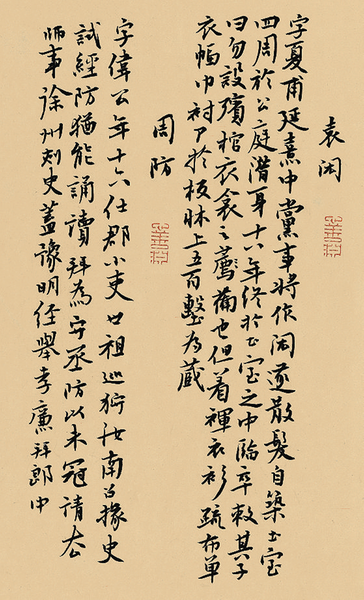 袁閎
字夏甫延熹中黨事將作閎遂散髮自築土室
四周於公庭潛身十八年終於土室之中臨卒敕其子
曰勿設殯棺衣衾之備也但着褌衣衫疏布單
衣幅巾襯尸於板牀上五百墼為藏
周防
字偉公年十六仕郡小吏世祖巡狩汝南召掾史
試經防猶能誦讀拜為守丞防以未冠請去
師事徐州刺史蓋豫明經舉孝廉拜郎中